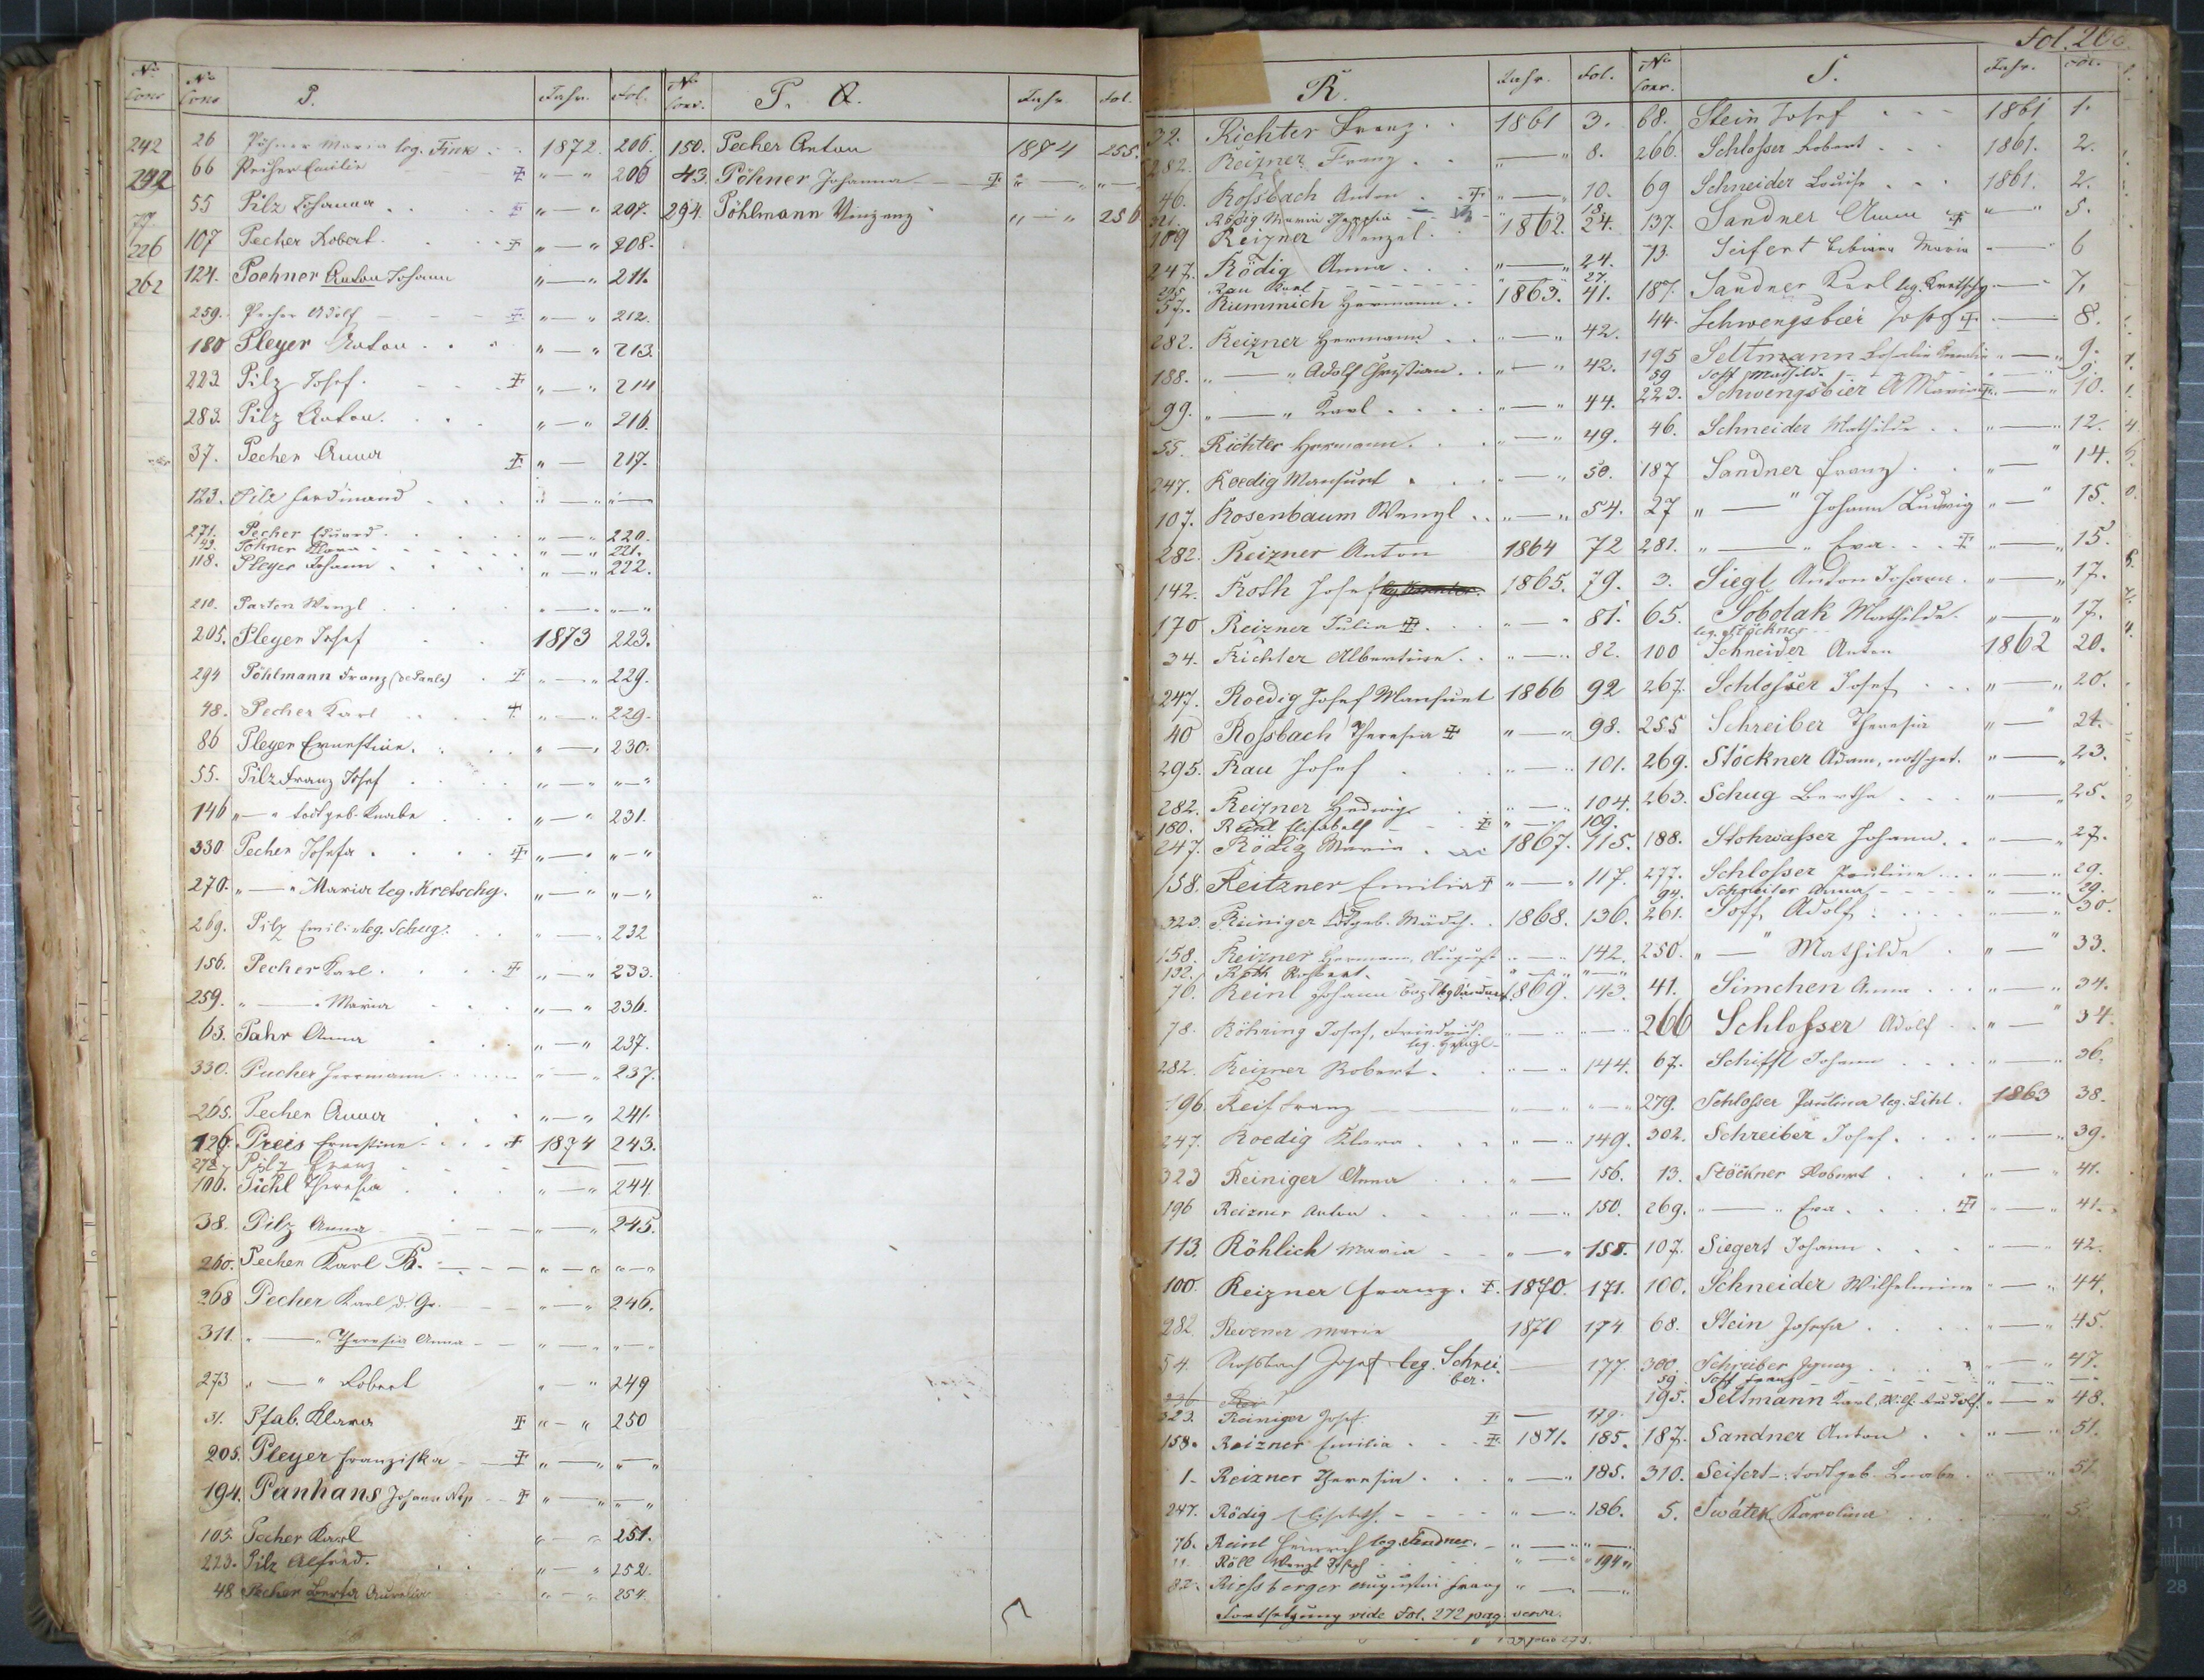 Fol. 266.
No Cons No Cons P. Jahr. Fol.
242 26 Pöhner Maria leg. Fink 1872. 206.
292 66 Pecher Emilie „ — „ 206
55 Pilz Johanna „ — „ 207.
226 107 Pecher Robert „ — „ 208.
262 124. Poehner Anton Johann „ — „ 211.
259. Pecher Adolf „ — „ 212.
180 Pleyer Anton „ — „ 213.
223 Pilz Josef „ — „ 214
283. Pilz Anton „ — „ 216.
37. Pecher Anna „ — 217.
123. Pilz Ferdinand „ — „ „ —
271. Pecher Eduard „ — „ 220.
43. Pöhner Klara „ — „ 221.
118. Pleyer Johann „ — „ 222.
210. Parton Wenzl „ — „ „ — „
205. Pleyer Josef 1873 223.
294 Pöhlmann Franz (de Paula) „ — „ 229.
48. Pecher Karl „ — „ 229.
86 Pleyer Ernestine „ — „ 230.
55. Pilz Franz Josef „ — „ „ — „
146 „ — „ todtgeb. Knabe „ — „ 231.
330 Pecher Josefa „ — „ „ — „
270. „ — „ Maria leg. Kretschy. „ — „ „ — „
269. Pilz Emilie leg. Schug. „ — „ 232
156. Pecher Karl „ — „ 233.
259. „ — „ Maria „ — „ 236.
63. Pahr Anna „ — „ 237.
330. Pucher Herrmann „ — „ 237.
265. Pecher Anna „ — „ 241.
126. Preis Ernestine 1874 243.
272. Pilz Franz
106. Pichl Theresia „ — „ 244.
38. Pilz Anna „ — „ 245.
260. Pecher Karl B. „ — „ „ — „
268 Pecher Karl d. Gr. „ — „ 246.
311. „ — „ Theresia Anna „ — „ „ — „
273 „ — „ Robert „ — „ 249
31. Pfab. Klara „ — „ 250
205. Pleyer Franziska „ — „ „ — „
194. Panhans Johann Nep „ — „ „ — „
105. Pecher Karl „ — „ 251.
223. Pilz Alfred. „ — „ 252.
48 Pecher Berta Aurelia „ — „ 254.
No Cons. P. Q. Jahr Fol.
150. Pecher Anton 1874 255.
43. Pöhner Johanna „ — „ „ — „
294. Pöhlmann Vinzenz „ — „ 256
R. Jahr. Fol.
32. Richter Franz 1861 3.
282. Reizner Franz „ — „ 8.
46. Rossbach Anton „ — „ 10.
Rödig Maria Theresia 18.
109 Reizner Wenzel 1862. 24.
247. Rödig Anna „ — „ 24.
295 Rau Karl 27.
57. Rummich Hermann 1863. 41.
282. Reizner Hermann „ — „ 42.
188. „ — „ Adolf Christian „ — „ 42.
99. „ — „ Karl „ — „ 44.
55. Richter Hermann „ — „ 49.
247. Roedig Mansuet „ — „ 50.
107. Rosenbaum Wenzl „ — „ 54.
282. Reizner Anton 1864 72
142. Roth Josef 1865. 79.
170 Reizner Julia „ — „ 81.
34. Richter Albertine „ — „ 82.
247. Roedig Josef Mansuet 1866 92
40 Rossbach Theresia „ — „ 98.
295. Rau Josef „ — „ 101.
282. Reizner Hedwig „ — „ 104.
180. Reinl Elisabeth „ — „ 109.
247. Rödig Maria 1867. 115.
158. Reitzner Emilia „ — „ 117.
323. Reiniger todtgeb. Mädch. 1868. 136.
158. Reizner Hermann August „ — „ 142.
132. Roth Robert. „ — „ „ — „
76. Reinl Johann 1869. 143.
78. Röhring Josef, Friedrich. „ — „ „ — „
282. Reizner Robert. „ — „ 144.
196. Reif Franz „ — „ „ — „
247. Roedig Klara „ — „ 149.
323 Reiniger Anna „ — 156.
196 Reizner Anton „ — „ 150.
113. Röhlich Maria „ — „ 158.
100. Reizner Franz. 1870. 171.
282. Reizner Maria 1870 174
54. Rossbach Josef leg. Schreiber. — 177.
323. Reiniger Josef — 179.
158. Reizner Emilia 1871. 185.
1. Reizner Theresia „ — „ 185.
247. Rödig Elisabeth. „ — „ 186.
76. Reinl Heinrich leg. Sandner. „ — „ „ — „
Röll Wenzl Josef „ — „ 194
82. Riessberger Augustin Franz „ — „ „
Fortsetzung vide Fol. 272 pag. versa.
No Cons. S. Jahr. Fol.
68. Stein Josef 1861 1.
266. Schlosser Robert 1861. 2.
69 Schneider Louise 1861. 2.
137. Sandner Anna „ — „ 5.
73. Seifert Bibiana Maria „ — „ 6
187. Sandner Karl leg. Kretschy — 7.
44. Schwengsbier Josef — 8.
195 Seltmann Rosalia „ — „ 9.
59 Soff Mathild. 9.
223. Schwengsbier A Maria „ — „ 10.
46. Schneider Mathilde „ — „ 12.
187 Sandner Franz „ — „ 14.
27 „ — „ Johann Ludwig „ — „ 15.
281. „ — „ Eva „ — „ 15.
3. Siegl Anton Johann „ — „ 17.
65. Sobotak Mathilde. „ — „ 17.
leg. Stöckner
100 Schneider Anton 1862 20.
267. Schlosser Josef „ — „ 20.
255 Schreiber Theresia „ — „ 21.
269. Stöckner Adam, nothget. „ — „ 23.
263. Schug Bertha „ — „ 25.
188. Stohwasser Johann. „ — „ 27.
277. Schlosser Pauline „ — „ 29.
94. Schreiter Anna „ — „ 29.
261. Soff, Adolf „ — „ 30.
250. „ — „ Mathilde „ — „ 33.
41. Simchen Anna „ — „ 34.
266 Schlosser Adolf „ — „ 34.
67. Schiffl Johann „ — „ 36.
279. Schlosser Paulina leg. Lihl. 1863 38.
302. Schreiber Josef „ — „ 39.
13. Stöckner Robert „ — „ 41.
269. „ — „ Eva „ — „ 41.
107. Siegert Johann „ — „ 42.
100. Schneider Wilhelmine „ — „ 44.
68. Stein Josefa „ — „ 45.
300. Schreiber Ignaz „ — „ 47.
59. Soff Franz „ — „ „ — „
195. Seltmann Karl, Rudolf. „ — „ 48.
187. Sandner Anton „ — „ 51.
310. Seifert todtgeb. Knabe „ — „ 51.
5. Swátek Karolina
11
28